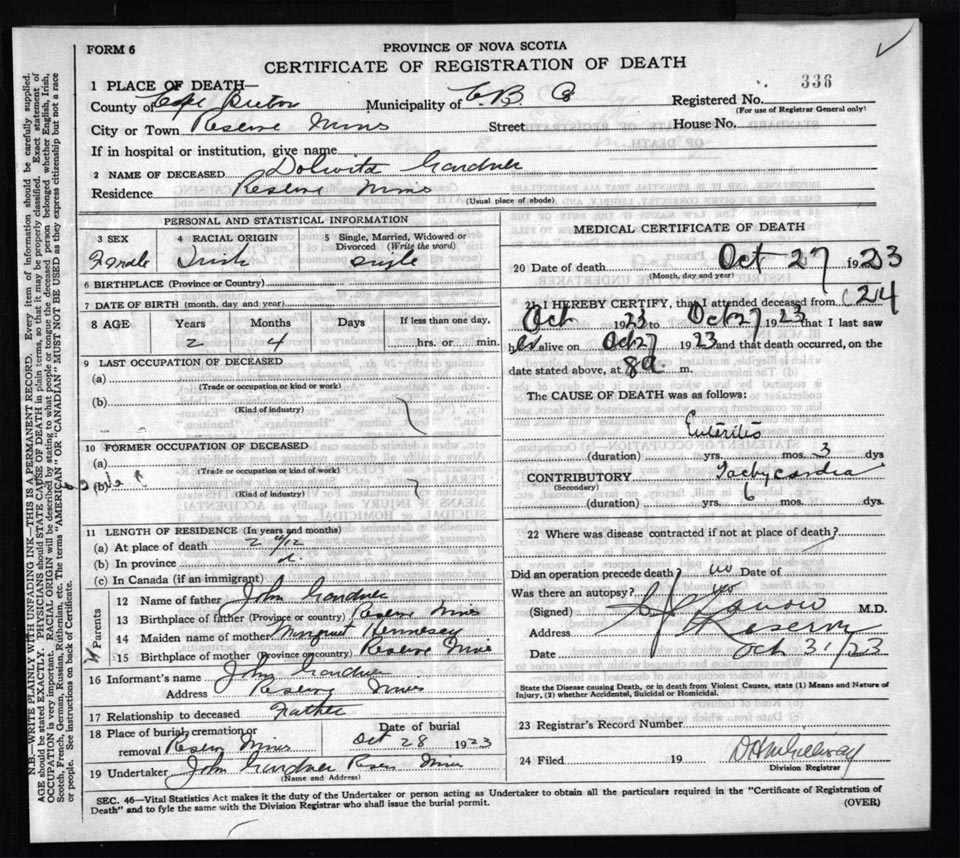 FORM 6
PROVINCE OF NOVA SCOTIA
CERTIFICATE OF REGISTRATION OF DEATH
336
1 PLACE OF DEATH—
County of Cape Breton Municipality of C.B. Co Registered No.
(For use of Registrar General only)
City or Town Reserve Mines Street House No.
If in hospital or institution, give name
2 NAME OF DECEASED Gardner
Residence Reserve Mines
(Usual place of abode)
PERSONAL AND STATISTICAL INFORMATION
3 SEX 4 RACIAL ORIGIN 5 Single, Married, Widowed or Divorced (Write the word)
Female Irish single
6 BIRTHPLACE (Province or Country)
7 DATE OF BIRTH (month, day and year)
8 AGE Years Months Days If less than one day,
2 4 hrs. or min.
9 LAST OCCUPATION OF DECEASED
(a)
(Trade or occupation or kind or work)
(b)
(Kind of industry)
10 FORMER OCCUPATION OF DECEASED
(a)
(Trade or occupation or kind of work)
(b)
(Kind of industry)
11 LENGTH OF RESIDENCE (In years and months)
(a) At place of death 2 4/12
(b) In province
(c) In Canada (if an immigrant)
Parents
12 Name of father John Gardner
13 Birthplace of father (Province or country) Reserve Mines
14 Maiden name of mother Margaret Hennesey
15 Birthplace of mother (Province or country) Reserve Mines
16 Informant's name John Gardner
Address Reserve Mines
17 Relationship to deceased Father
18 Place of burial, cremation or removal Reserve Mines Date of burial Oct 28 1923
19 Undertaker John Gardner Reser Mines
(Name and Address)
MEDICAL CERTIFICATE OF DEATH
20 Date of death Oct 27 1923
(Month, day and year)
21 I HEREBY CERTIFY, that I attended deceased from 24
Oct 1923 to Oct 27 1923 that I last saw
her alive on Oct 27 1923 and that death occurred, on the
date stated above, at 8 a. m.
The CAUSE OF DEATH was as follows:
Enteritis
(duration) yrs. mos. 3 dys
CONTRIBUTORY Tachycardia
(Secondary)
(duration) yrs. 6 mos. dys.
22 Where was disease contracted if not at place of death?
Did an operation precede death? no Date of
Was there an autopsy? no
(Signed) M.D.
Address Reserve
Date Oct 31/23
State the Disease causing Death, or in death from Violent Causes, state (1) Means and Nature of
Injury, (2) whether Accidental, Suicidal or Homicidal.
23 Registrar's Record Number
24 Filed 19 D H McGillivray
Division Registrar
SEC. 46—Vital Statistics Act makes it the duty of the Undertaker or person acting as Undertaker to obtain all the particulars required in the "Certificate of Registration of
Death" and to fyle the same with the Division Registrar who shall issue the burial permit.
(OVER)
N.B.—WRITE PLAINLY WITH UNFADING INK—THIS IS A PERMANENT RECORD. Every item of information should be carefully supplied.
AGE should be stated EXACTLY. PHYSICIANS should STATE CAUSE OF DEATH in plain terms, so that it may be properly classified. Exact statement of
OCCUPATION is very important. RACIAL ORIGIN will be described by stating to what people or tongue the deceased person belonged whether English, Irish,
Scotch, French, German, Russian, Ruthenian, etc. The terms "AMERICAN" OR "CANADIAN" MUST NOT BE USED as they express citizenship but not a race
or people. See instructions on back of Certificate.